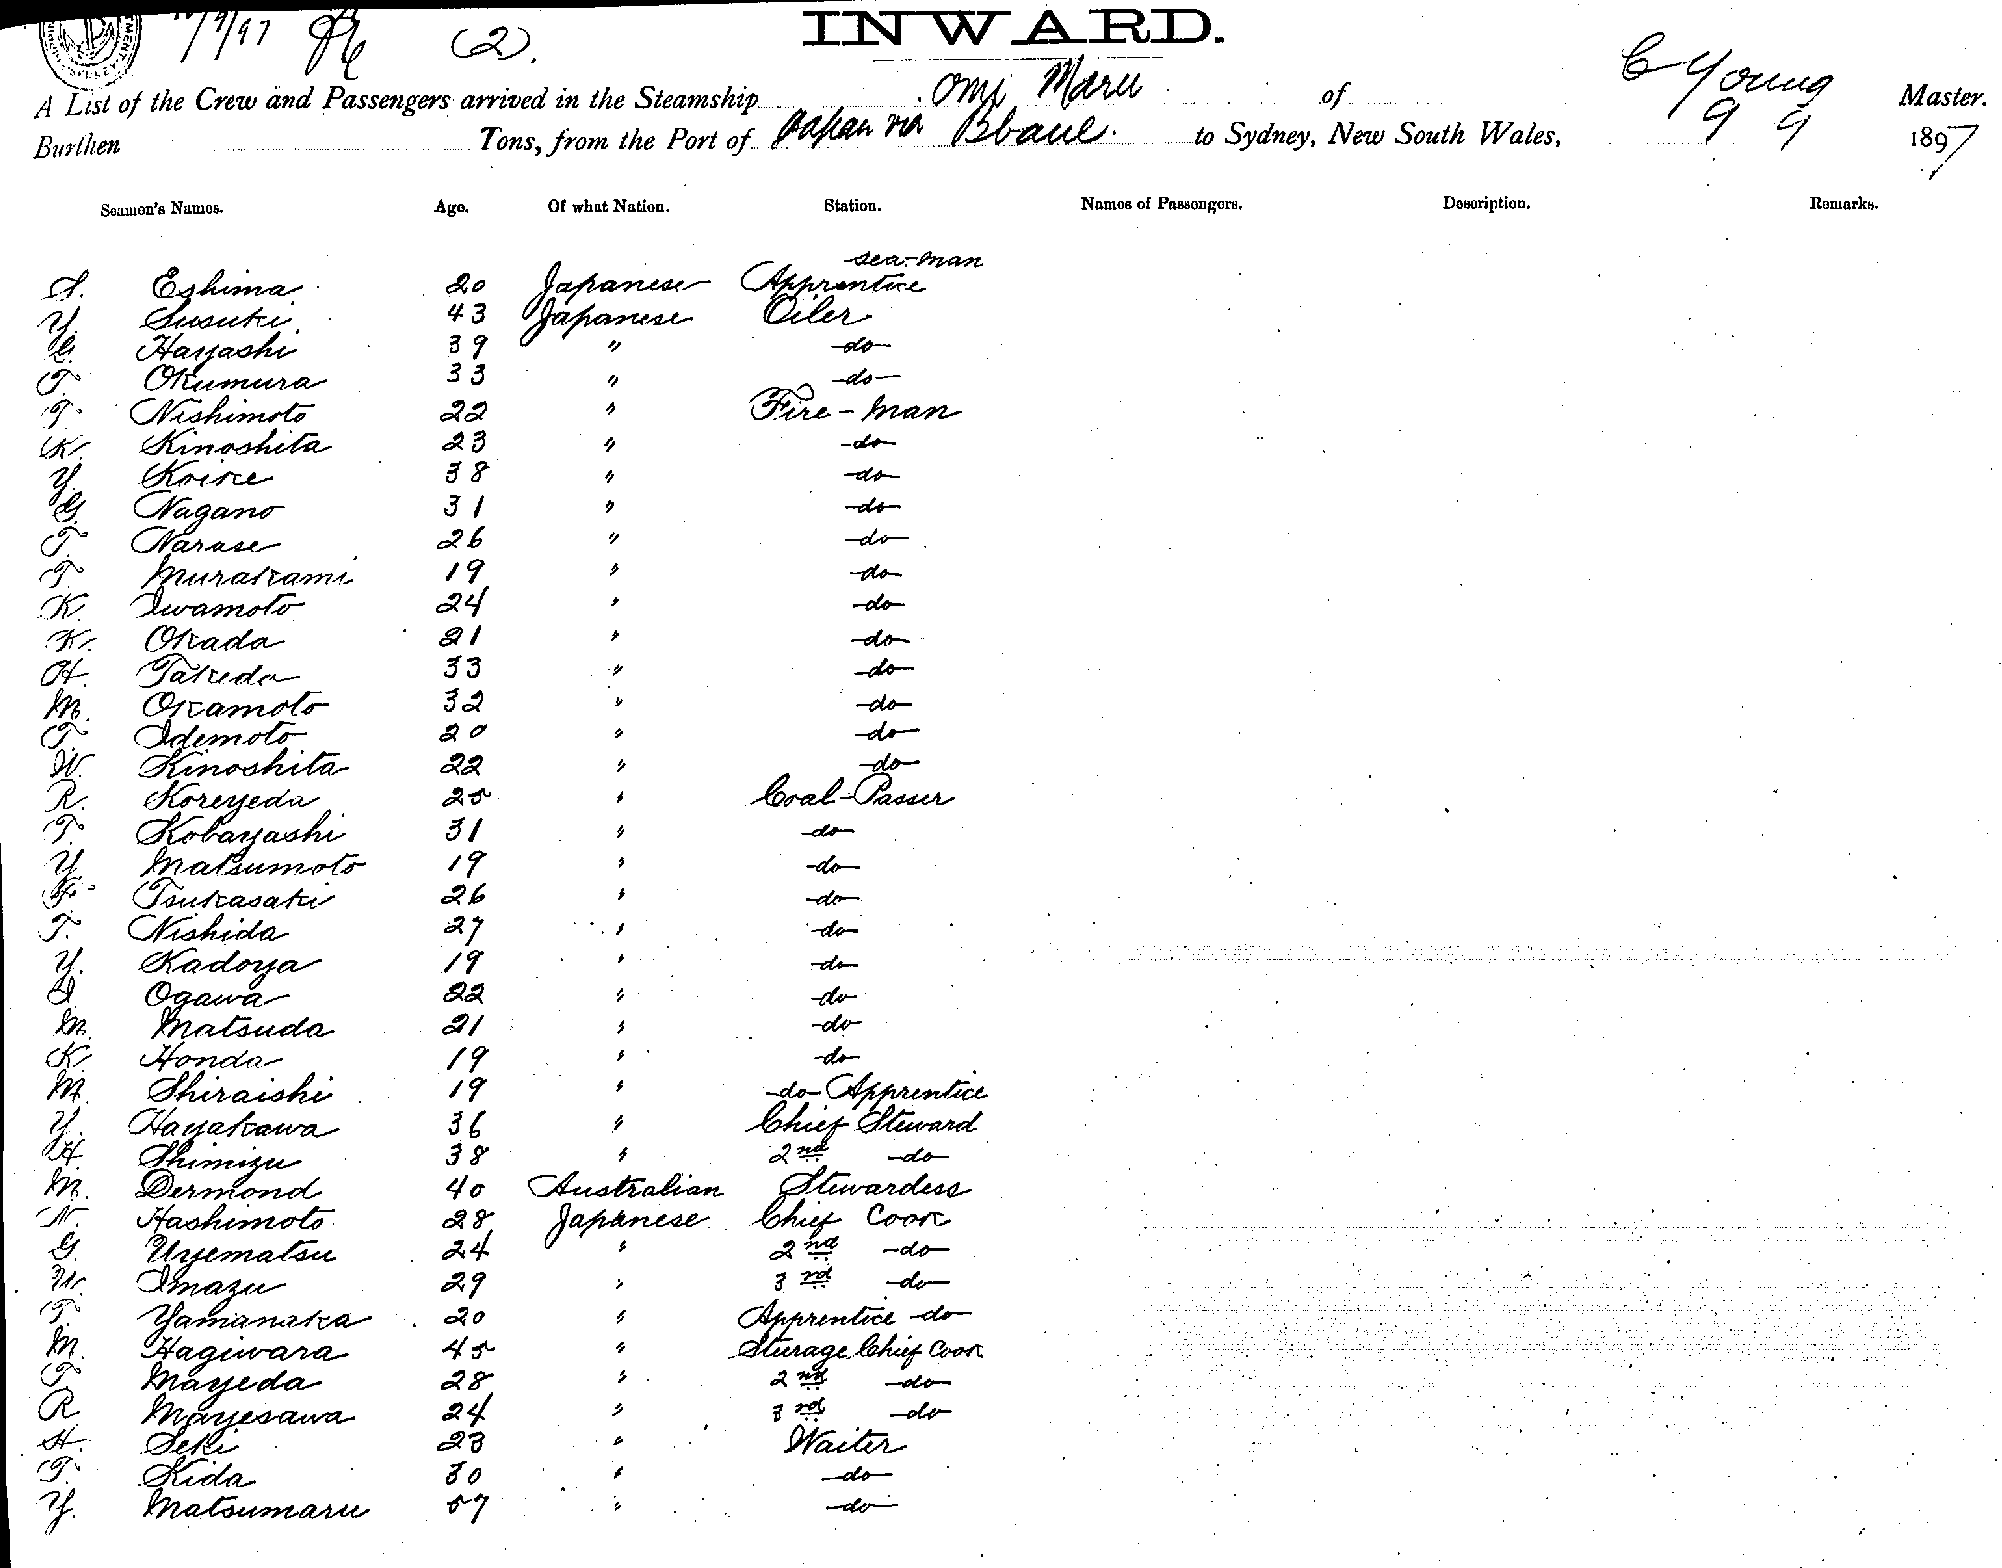 10/9/97 (2). INWARD.
A List of the Crew and Passengers arrived in the Steamship Omi Maru of C Young Master.
Burthen Tons, from the Port of Japan via Bbane. to Sydney, New South Wales, 9 9 1897
Seamen's Names. Age. Of what Nation. Station. Names of Passengers. Description. Remarks.
sea-man
S. Eshima 20 Japanese Apprentice
Y. Susuki 43 Japanese Oiler
G. Hayashi 39 " -do-
T. Okumura 33 " -do-
T. Nishimoto 22 " Fire-man
K. Kinoshita 23 " -do-
Y. Koike 38 " -do-
G. Nagano 31 " -do-
T. Naruse 26 " -do-
T. Murakami 19 " -do-
K. Iwamoto 24 " -do-
K. Okada 21 " -do-
H. Takeda 33 " -do-
M. Okamoto 32 " -do-
T. Idemoto 20 " -do-
W. Kinoshita 22 " -do-
R. Koreyeda 25 " Coal-Passer
T. Kobayashi 31 " -do-
Y. Matsumoto 19 " -do-
F. Tsukasaki 26 " -do-
T. Nishida 27 " -do-
Y. Kadoya 19 " -do-
I. Ogawa 22 " -do-
M. Matsuda 21 " -do-
K. Honda 19 " -do-
M. Shiraishi 19 " -do- Apprentice
Y. Hayakawa 36 " Chief Steward
H. Shimizu 38 " 2nd -do-
M. Dermond 40 Australian Stewardess
N. Hashimoto 28 Japanese Chief Cook
G. Uyematsu 24 " 2nd -do-
U. Imazu 29 " 3rd -do-
T. Yamanaka 20 " Apprentice -do-
M. Hagiwara 45 " Sturage Chief Cook
T. Mayeda 28 " 2nd -do-
R. Mayesawa 24 " 3rd -do-
H. Seki 23 " Waiter
T. Kida 30 " -do-
Y. Matsumaru 57 " -do-